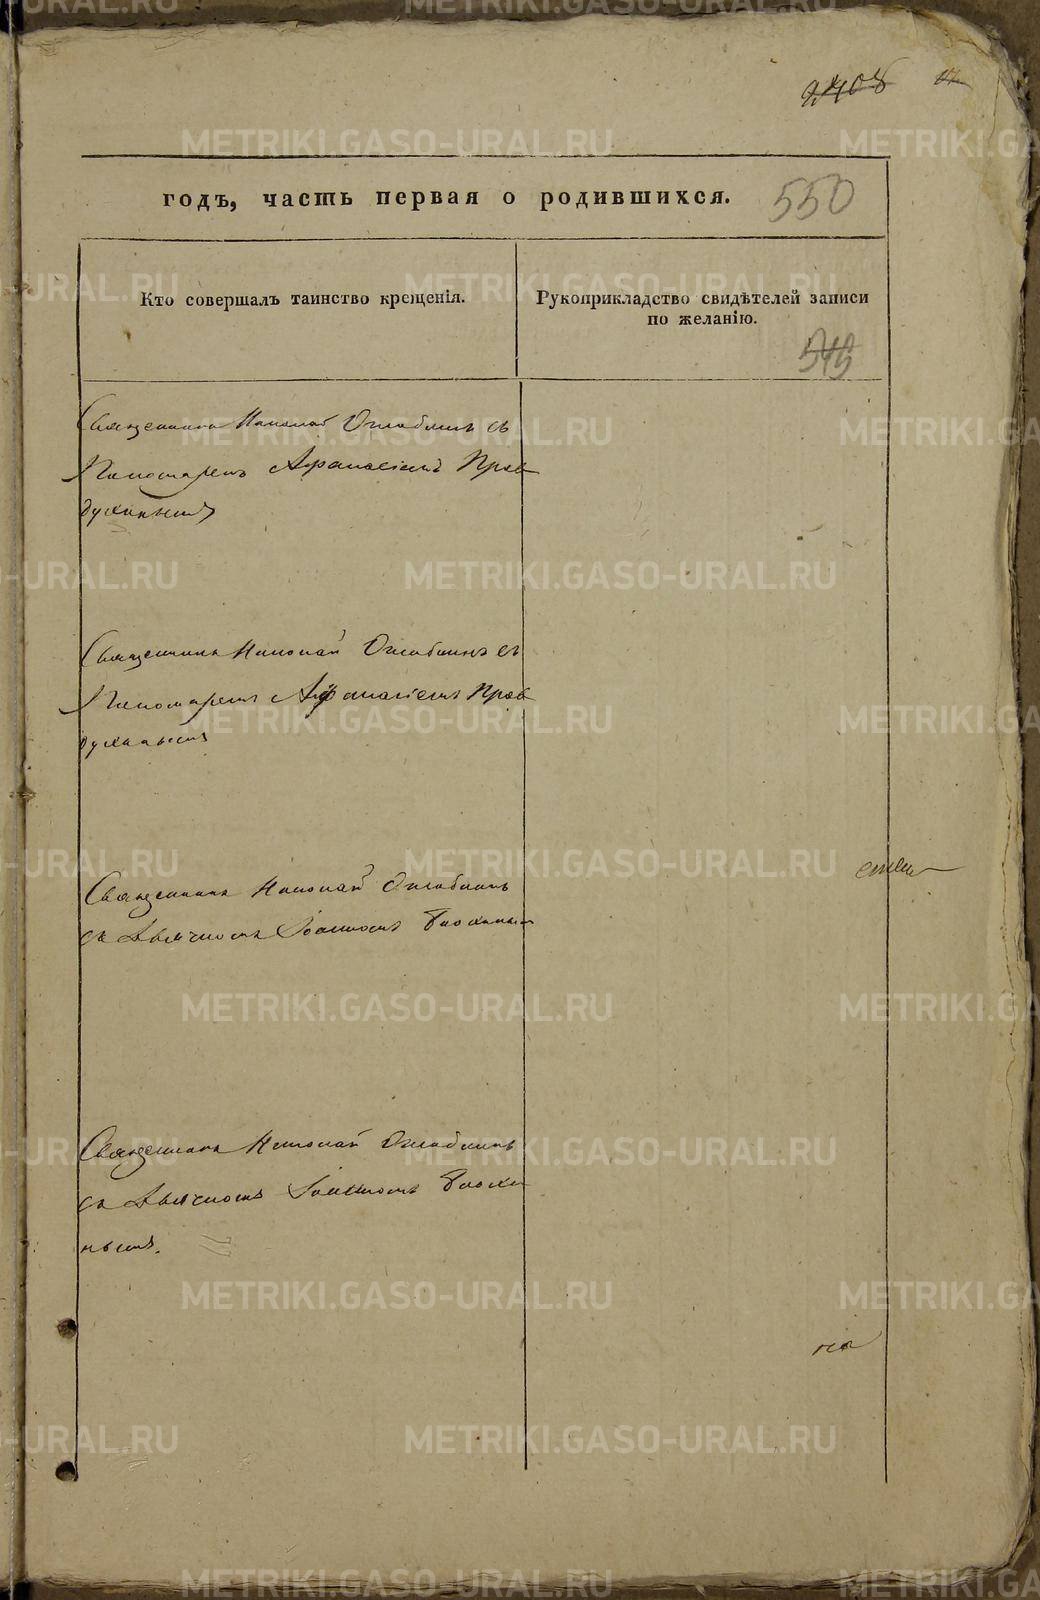 годъ, часть первая о родившихся.
550
Кто совершалъ таинство крещенія.
Рукоприкладство свидѣтелей записи
по желанію.
Священникъ Николай Оглоблинъ съ
Пономаремъ Афанасіемъ Прав
духинымъ
Священникъ Николай Оглоблинъ съ
Пономаремъ Афанасіемъ Прав
духинымъ
Священникъ Николай Оглоблинъ
съ Дьячкомъ Іоанномъ
Священникъ Николай Оглоблинъ
съ Дьячкомъ Іоанномъ
нымъ.
METRIKI.GASO-URAL.RU